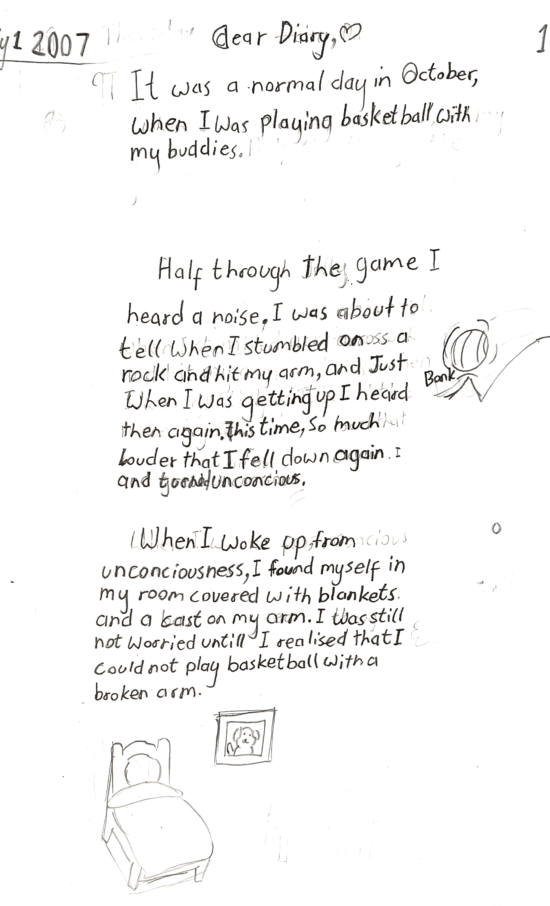 y1 2007
Dear Diary,
1
It was a normal day in October,
when I was playing basketball with
my buddies.
Half through the game I
heard a noise. I was about to
tell when I stumbled on a
rock and hit my arm, and Just
When I was getting up I heard
then again. This time, So much
Louder that I fell down again. I
and unconcious.
Bonk
When I woke up from
unconciousness, I found myself in
my room covered with blankets.
and a kast on my arm. I was still
not worried untill I realised that I
could not play basketball with a
broken arm.